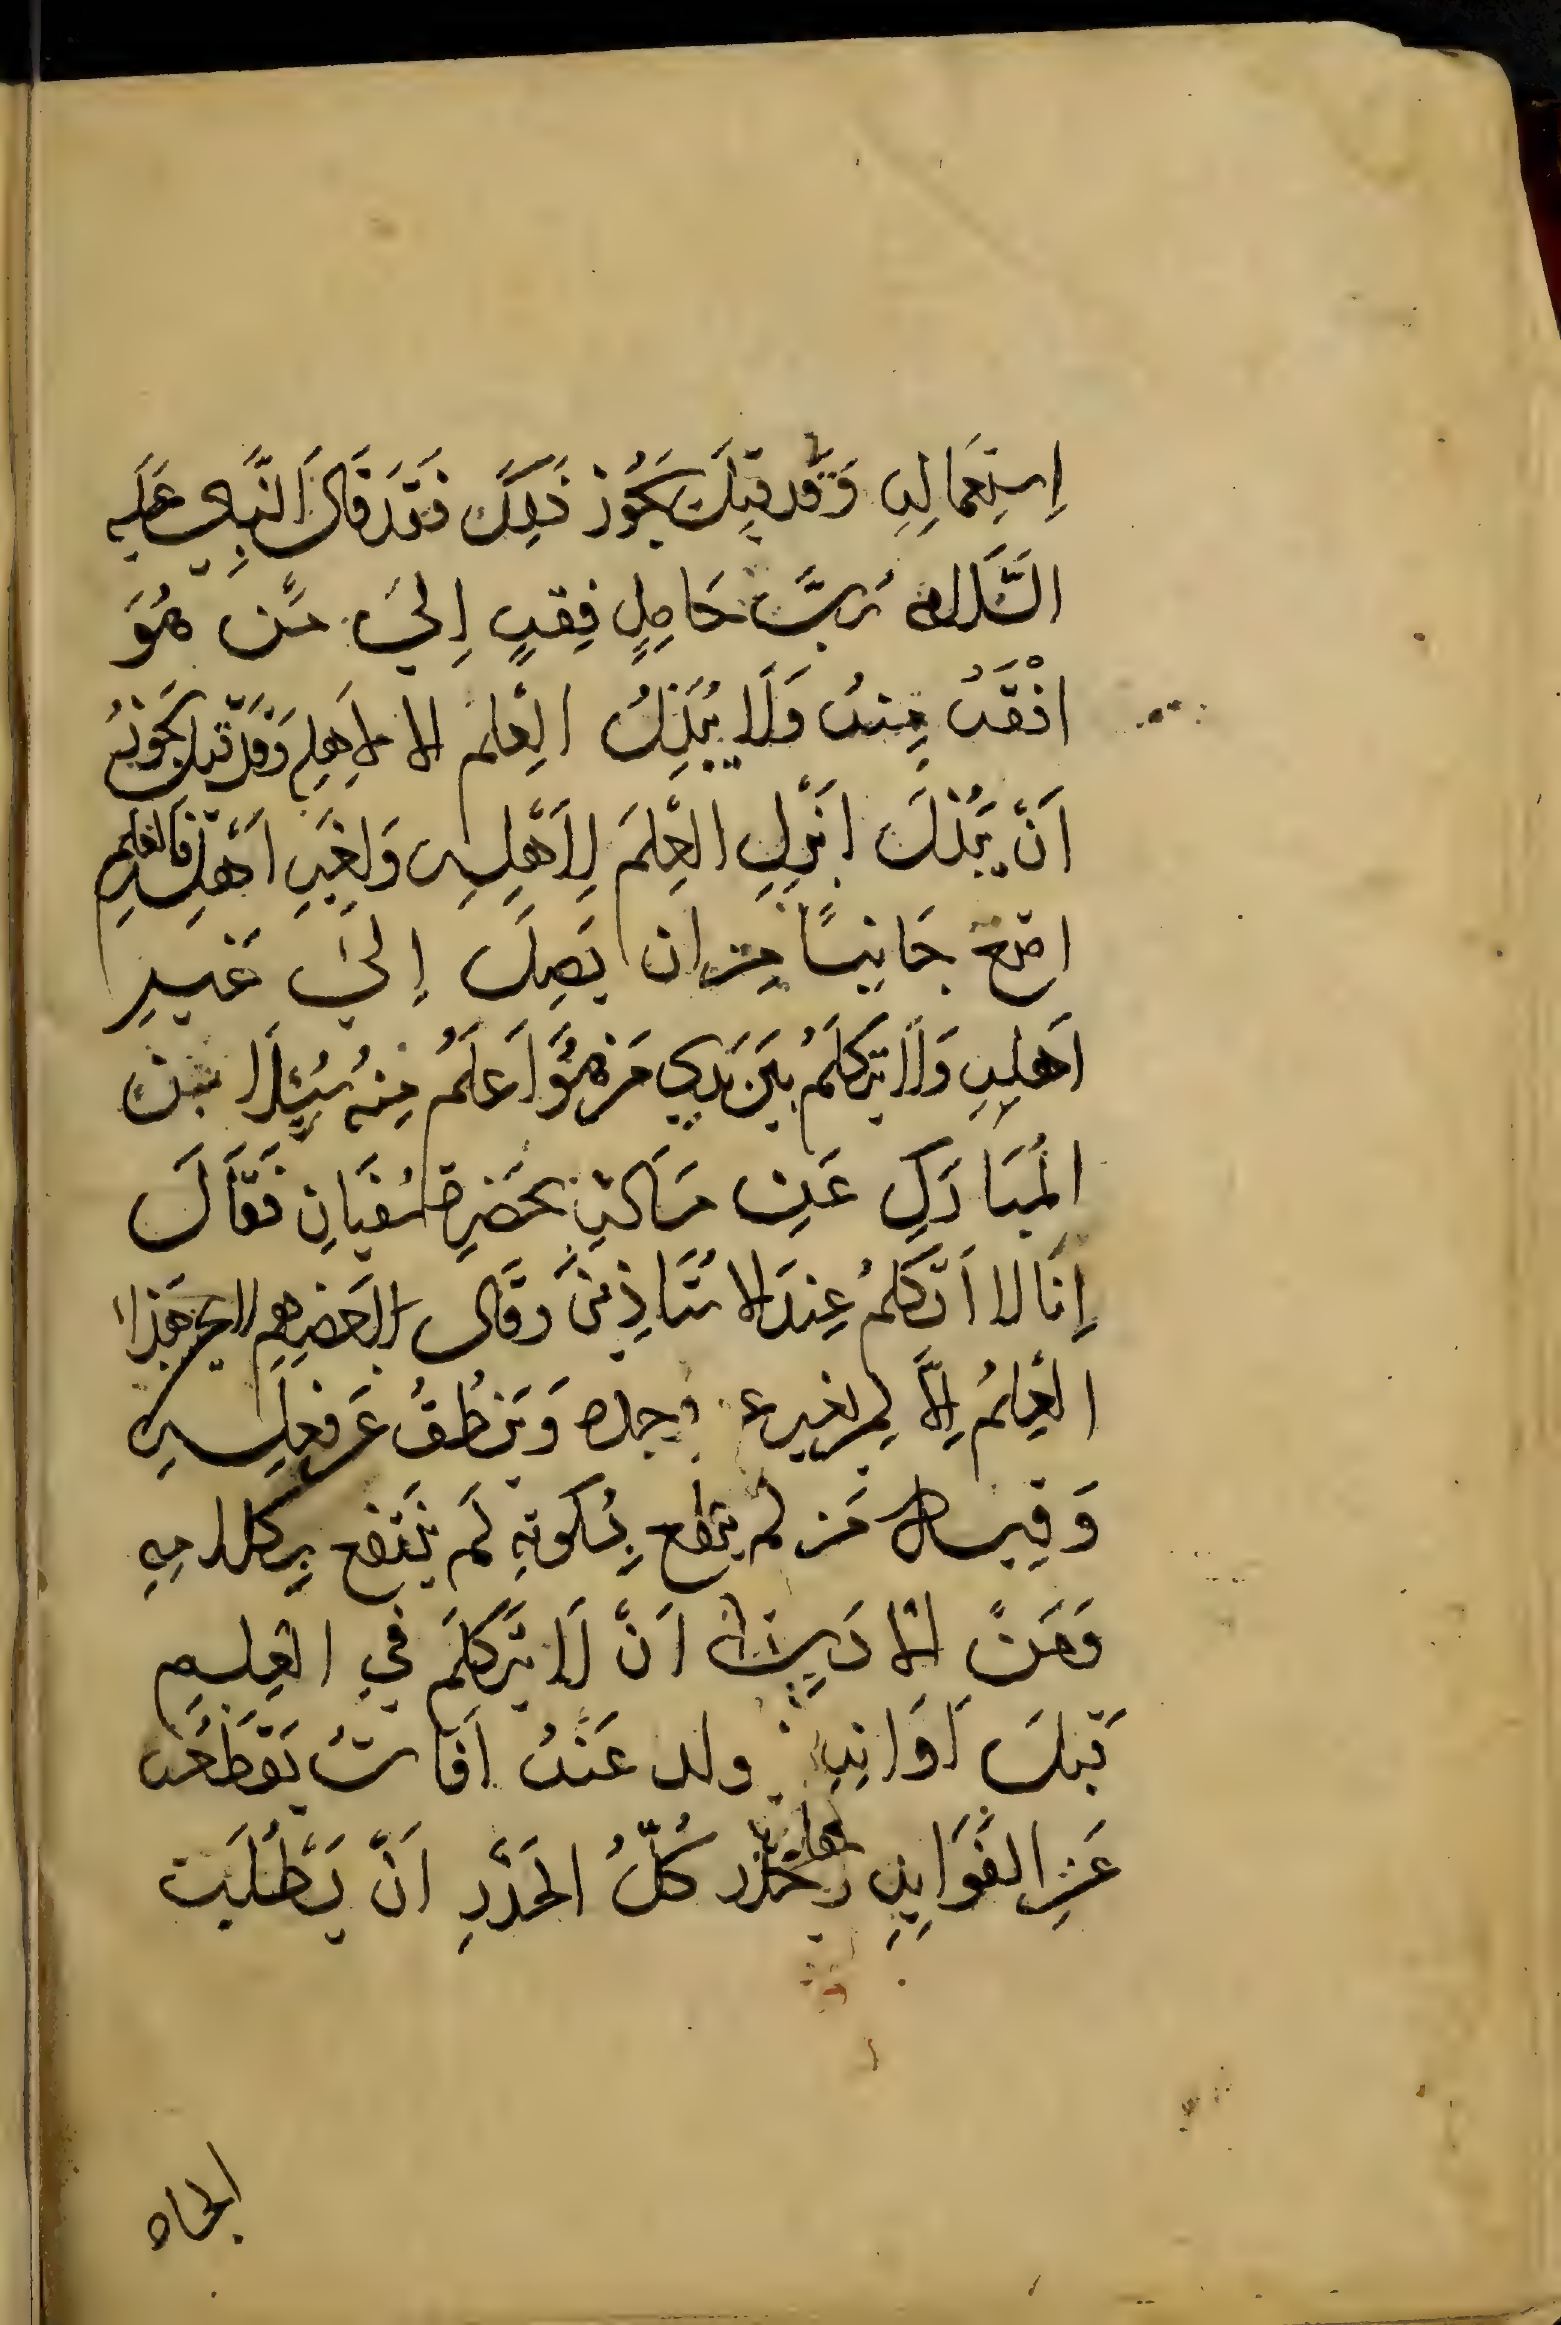 اِستِعمَالِهِ وَقَد قِيلَ يَجُوُز ذَلِكَ فَقَد قَالَ النَّبِي عَلَيهِ
السَّلَام رُبَّ حَامِلِ فِقهٍ اِليَ مَن هُوَ
افْقَهُ مِنهُ وَلَا يُبذِلُ العِلم الا لِاَهلِهِ وَقَد قيل يَجُوزُ
اَنّ يَبذُلَ العِلمَ لِاَهلِهِ وَلِغَيرِ اَهلِهِ فَالعلم
امنع جَانِبًا مِن ان يَصِلَ اِليَ غَيرِ
اَهلِهِ وَلَا يتَكَلَمُ بَينَ يَدي مَن هُوَ اَعلَمُ مِنهُ سُئِلَ ابن
المُبَارَكِ عَن مَسَالَةٍ بحَضرِة سُفيَانِ فَقَالَ
اِنَا لا اَتَكَلَمُ عِندَ الاستَاذِين وقَال بَعضِهِم هَذا
العِلمُ اِلَّا لِمن يعبر عن وجده وَيَنطُقُ عَن فِعلِهِ
وَقِيل مَن لم ينتفع بِسُكوتهِ لَم يَنتَفِع بِكلامِهِ
وَمَن الادَبِ اَنّ لَا يَتَكَلَمَ فيِ العِلمِ
قَبلَ اَوَانِهِ ولد عَنهُ افَاتُ يَقطَعُه
عَنِ الفَوَايِدِ وَيَحذَر كُلُّ الحَذَرِ اَنّ يَطلُبَ
الجاه